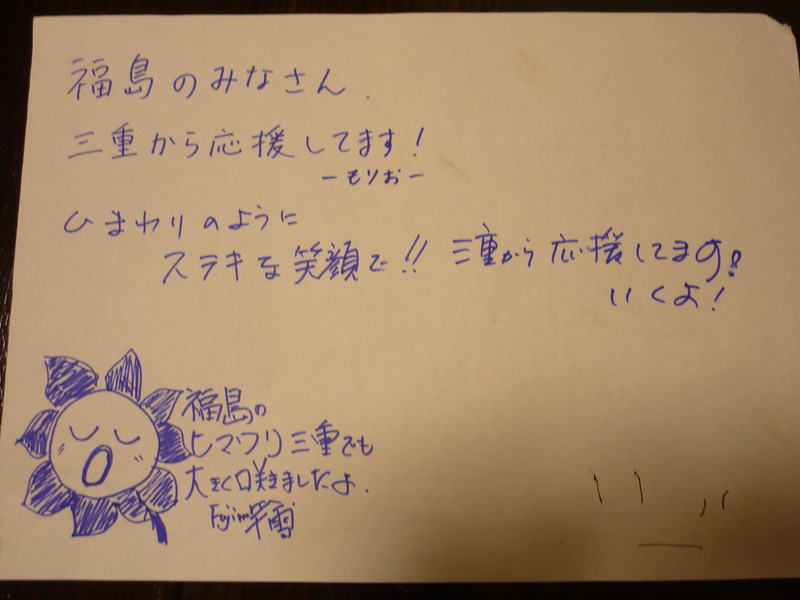 福島のみなさん.
三重から応援してます!
ーもりおー
ひまわりのように
ステキな笑顔で!! 三重から応援してます!
いくよ!
福島の
ヒマワリ三重でも
大きく咲きましたよ.